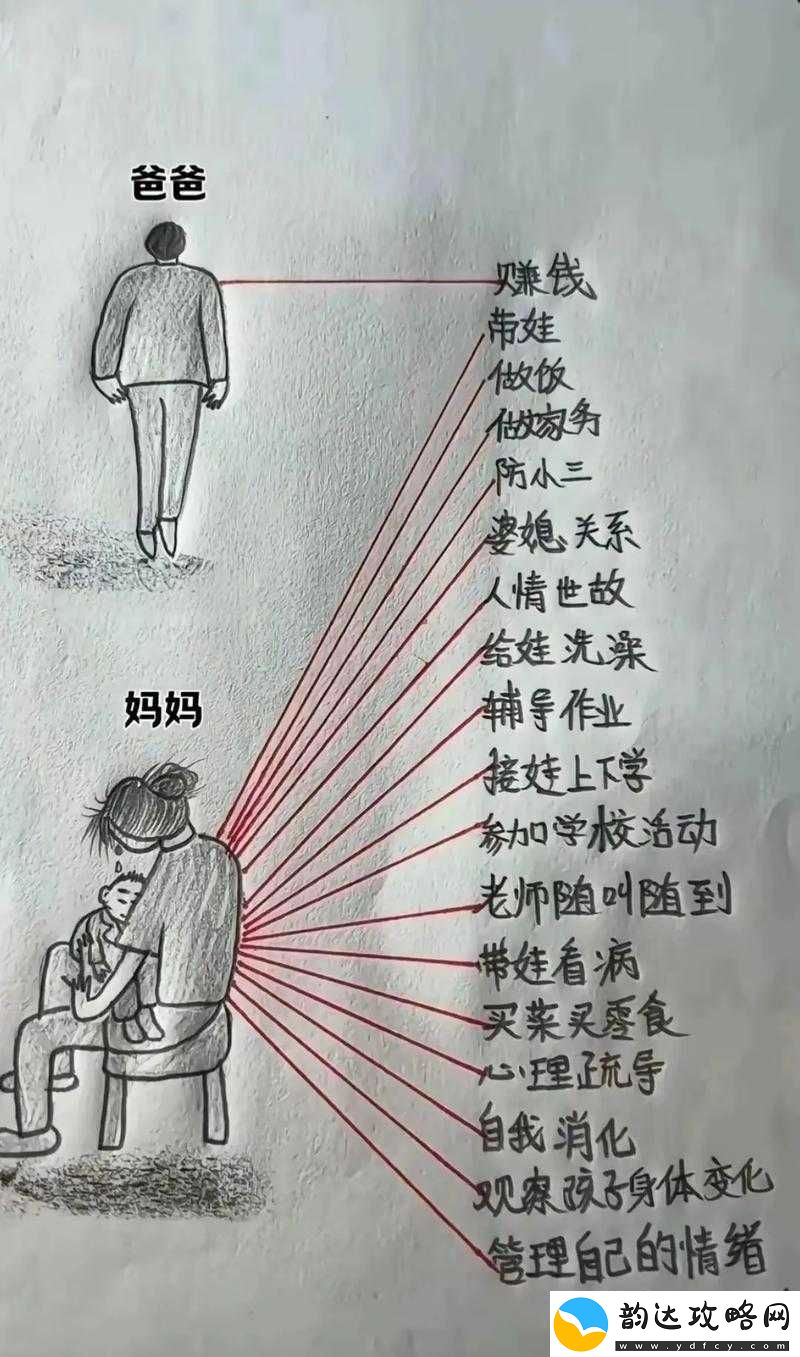 爸爸
赚钱
带娃
做饭
做家务
防小三
婆媳关系
人情世故
给娃洗澡
妈妈
辅导作业
接娃上下学
参加学校活动
老师随叫随到
带娃看病
买菜买零食
心理疏导
自我消化
观察孩子身体变化
管理自己的情绪
韵达攻略网
www.ydfcy.com